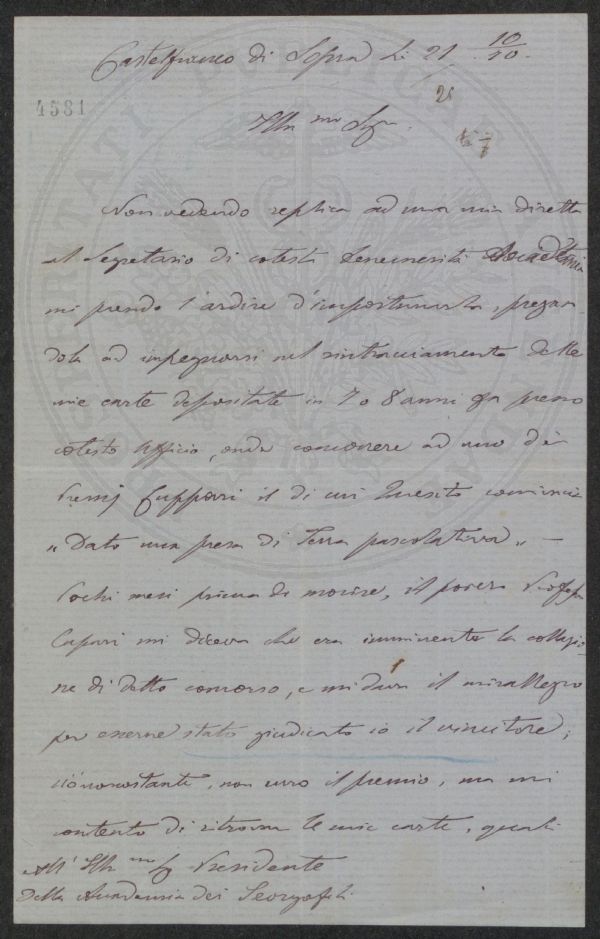 Castelfranco di Sopra li 21 10/80.
21
4581
Ill.mo Sigr.
Non vedendo replica ad una mia diretta
al Segretario di cotesta Benemerita Accademia
mi prendo l'ardire d'importunarla, pregan
dola ad impegnarsi nel rintracciamento delle
mie carte depositate in 7 o 8 anni fa presso
cotesto Uffizio, onde concorrere ad uno dei
Premj Cuppari il di cui Quesito comincia
„ Dato una presa di Terra pascolativa „ —
Pochi mesi prima di morire, il povero Profess.
Cuppari mi diceva che era imminente la collazio-
ne di detto concorso, e mi dava il mirallegro
per esserne stato giudicato io il vincitore;
ciò nonostante, non curo il premio, ma mi
contento di ritrovar le mie carte, quali
All' Ill.mo Sig Presidente
Della Accademia dei Georgofili